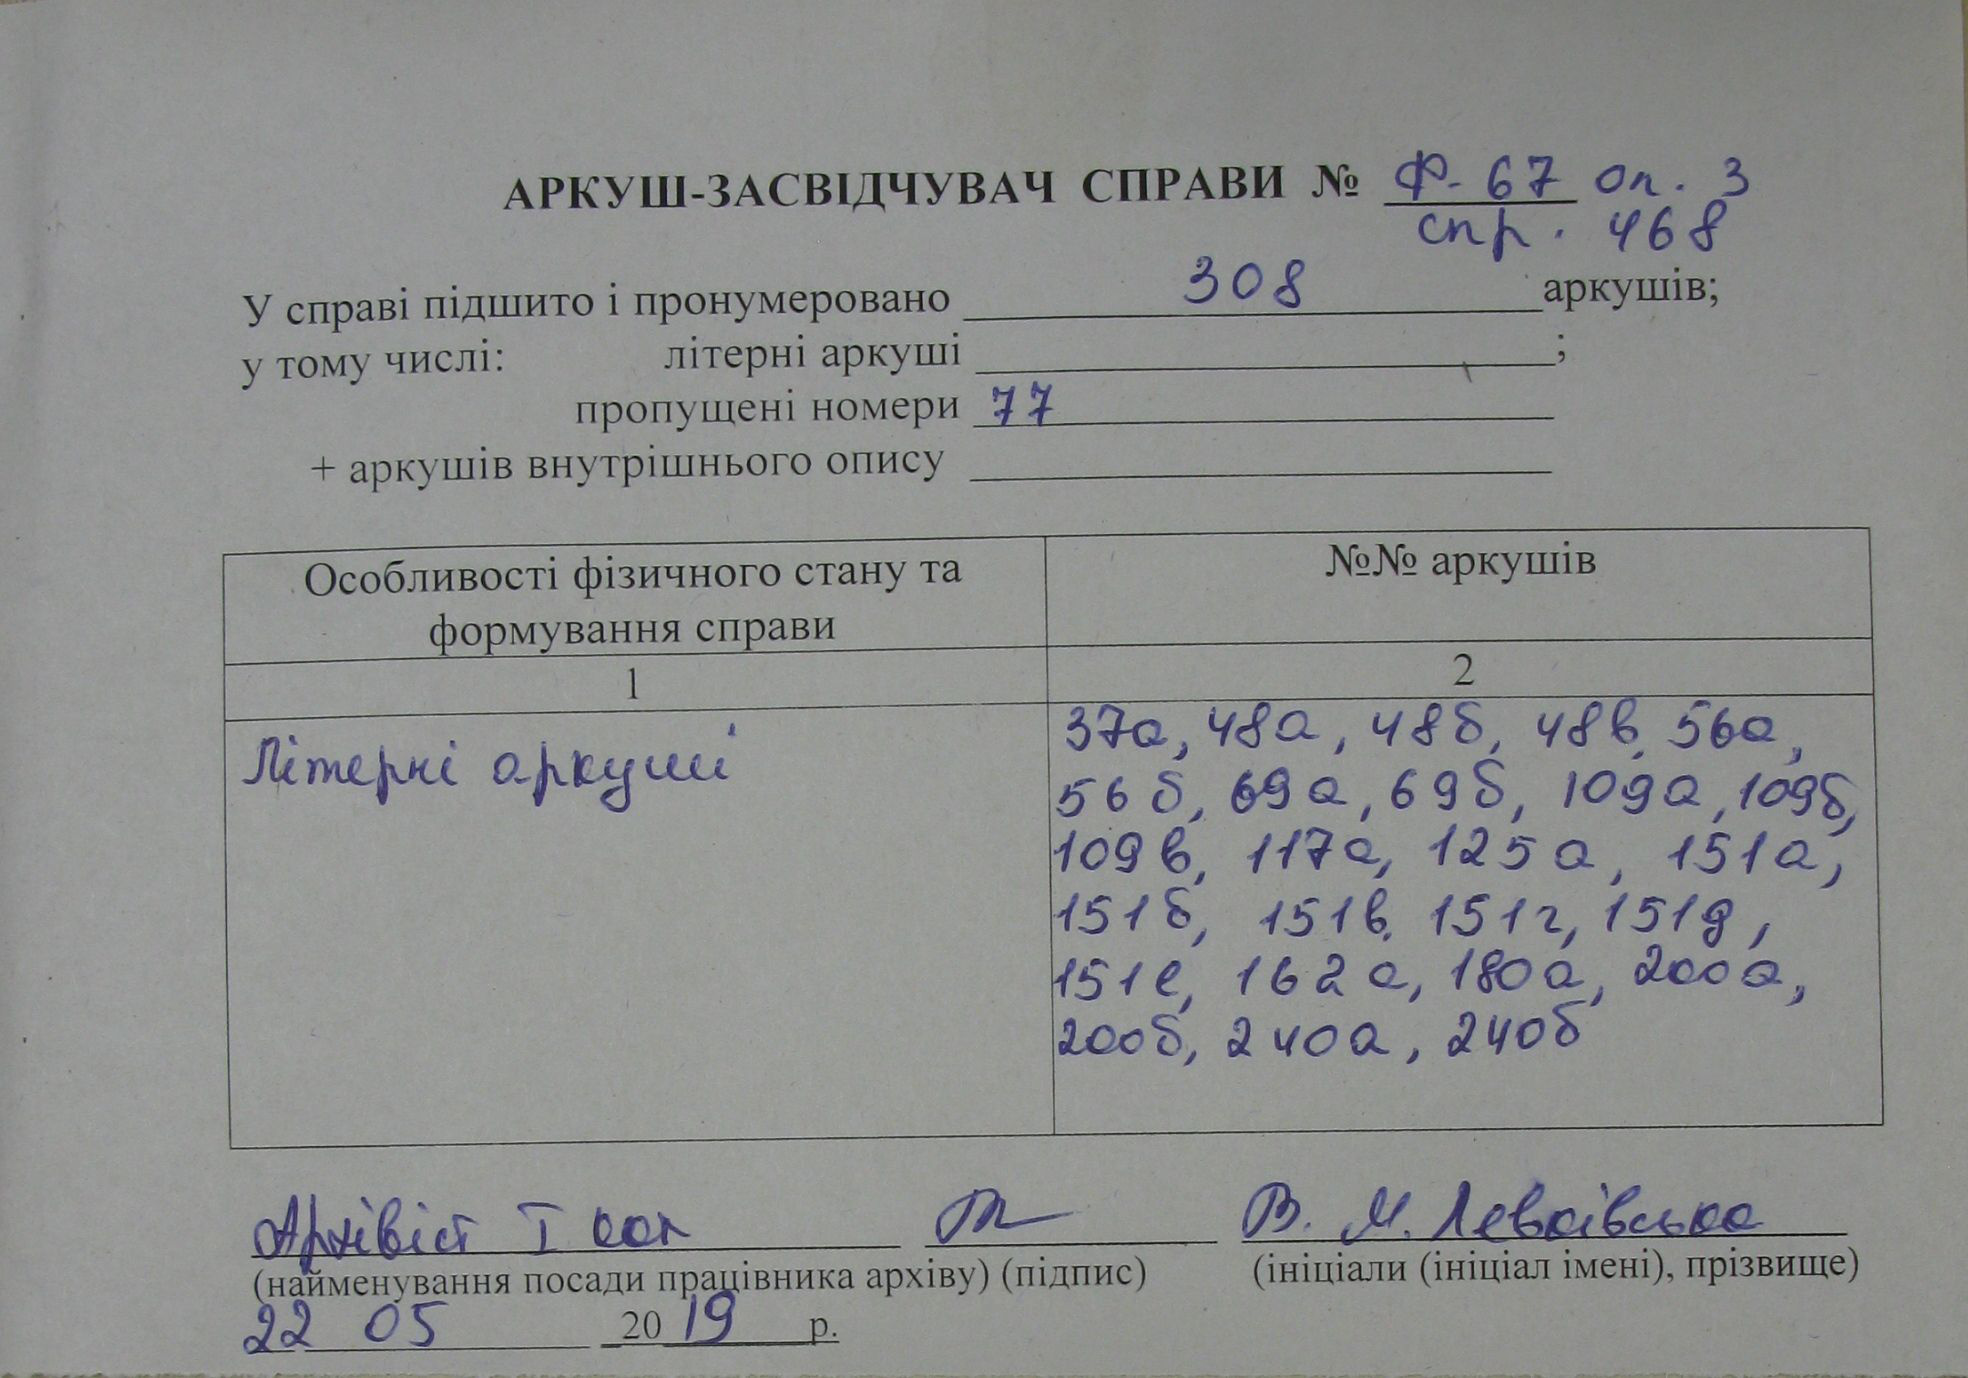 АРКУШ-ЗАСВІДЧУВАЧ СПРАВИ № Ф- 67 оп. 3
спр. 468
У справі підшито і пронумеровано 308 аркушів;
у тому числі: літерні аркуші ;
пропущені номери 77
+ аркушів внутрішнього опису
Особливості фізичного стану та
формування справи
№№ аркушів
1
2
Літерні аркуші
37а, 48а, 48б, 48в, 56а,
56б, 69а, 69б, 109а, 109б,
109в, 117а, 125а, 151а,
151б, 151в, 151г, 151д,
151е, 162а, 180а, 200а,
200б, 240а, 240б
Архівіст І кат В. М.
(найменування посади працівника архіву) (підпис) (ініціали (ініціал імені), прізвище)
22 05 2019 р.